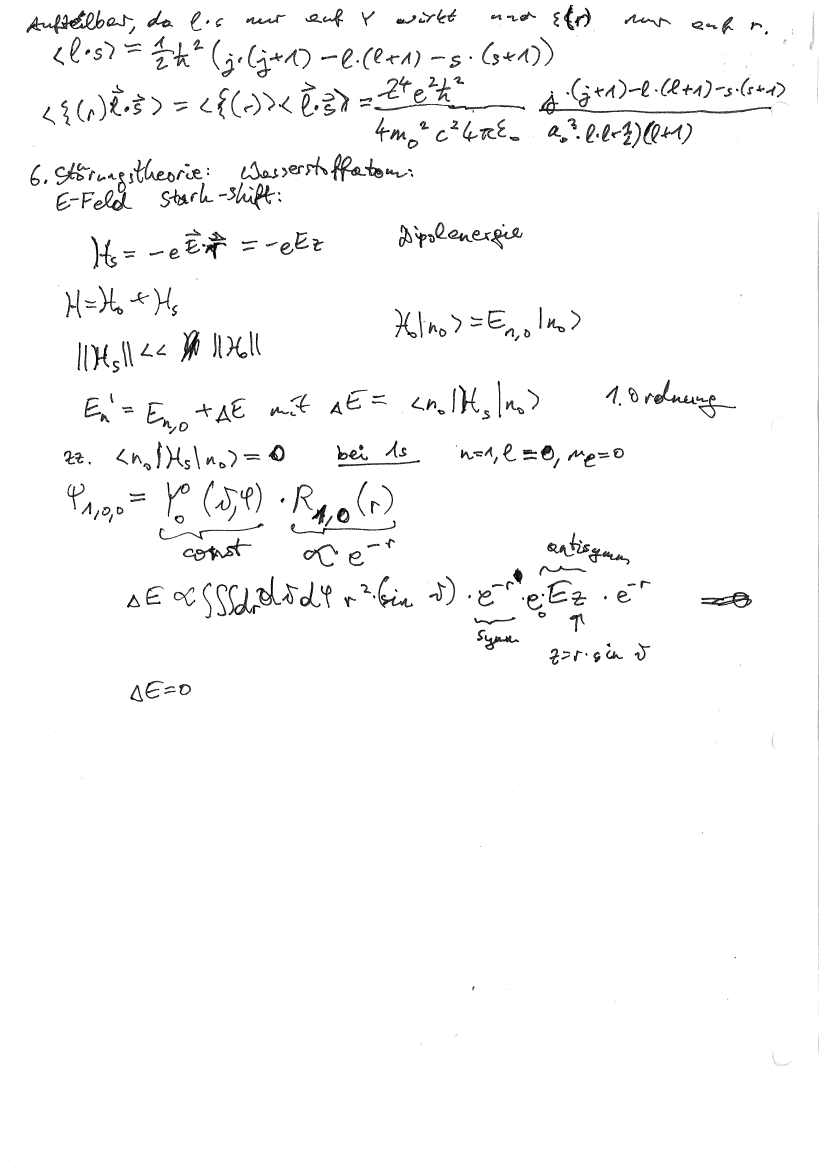 Aufteilbar, da l·s nur auf Y wirkt und ξ(r) nur auf r.
<l·s> = 1/2 ħ² (j·(j+1) − l·(l+1) − s·(s+1))
<ξ(r) l⃗·s⃗> = <ξ(r)><l⃗·s⃗> = Z⁴e²ħ² / 4m₀²c²4πε₀ · j·(j+1)−l·(l+1)−s·(s+1) / a₀³·l·(l+½)(l+1)
6. Störungstheorie: Wasserstoffatom:
E-Feld Stark-shift:
H_s = −e E⃗·r⃗ = −eEz Dipolenergie
H = H₀ + H_s
H₀|n₀> = E_{n,0}|n₀>
||H_s|| << ||H₀||
E_n' = E_{n,0} + ΔE mit ΔE = <n₀|H_s|n₀> 1. Ordnung
zz. <n₀|H_s|n₀> = 0 bei 1s n=1, l=0, m_e=0
Ψ_{1,0,0} = Y₀⁰(ϑ,φ) · R_{1,0}(r)
const ∝ e^{−r}
antisymm
ΔE ∝ ∫∫∫dr dϑ dφ r²·(sin ϑ) · e^{−r} · e₀ Ez · e^{−r}
symm
z=r·sin ϑ
ΔE=0